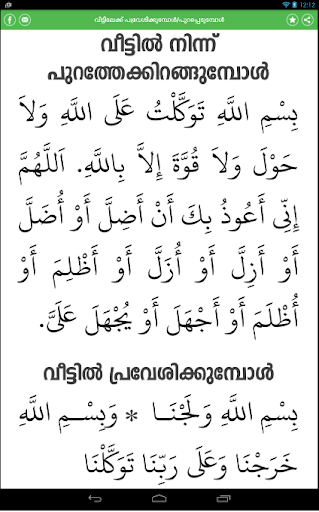 12:12
വീട്ടിലേക്ക് പ്രവേശിക്കുമ്പോൾ/പുറപ്പെടുമ്പോൾ
വീട്ടിൽ നിന്ന്
പുറത്തേക്കിറങ്ങുമ്പോൾ
بِسْمِ اللَّهِ تَوَكَّلْتُ عَلَى اللَّهِ وَلاَ
حَوْلَ وَلاَ قُوَّةَ إِلاَّ بِاللَّهِ. اَللَّهُمَّ
إِنِّى أَعُوذُ بِكَ أَنْ أَضِلَّ أَوْ أُضَلَّ
أَوْ أَزِلَّ أَوْ أُزَلَّ أَوْ أَظْلِمَ أَوْ
أُظْلَمَ أَوْ أَجْهَلَ أَوْ يُجْهَلَ عَلَىَّ.
വീട്ടിൽ പ്രവേശിക്കുമ്പോൾ
بِسْمِ اللَّهِ وَلَجْنَـا * وَبِسْـمِ اللَّهِ
خَرَجْنَا وَعَلَى رَبِّنَا تَوَكَّلْنَا